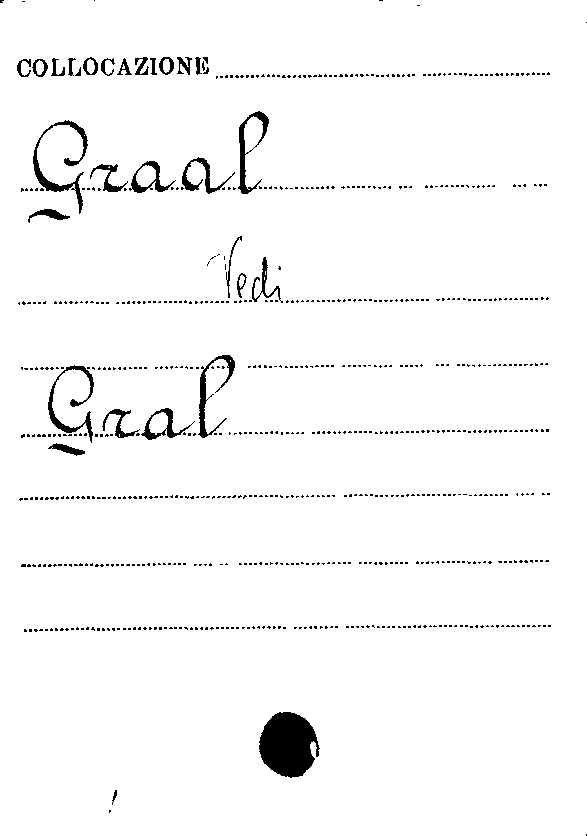 COLLOCAZIONE
Graal
Vedi
Gral